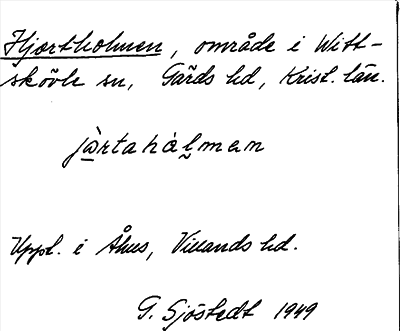 Hjortholmen, område i Witt-
skövle sn, Gärds hd, Krist. län.
jàrtahálman
Uppl. i Åhus, Villands hd.
G. Sjöstedt 1949